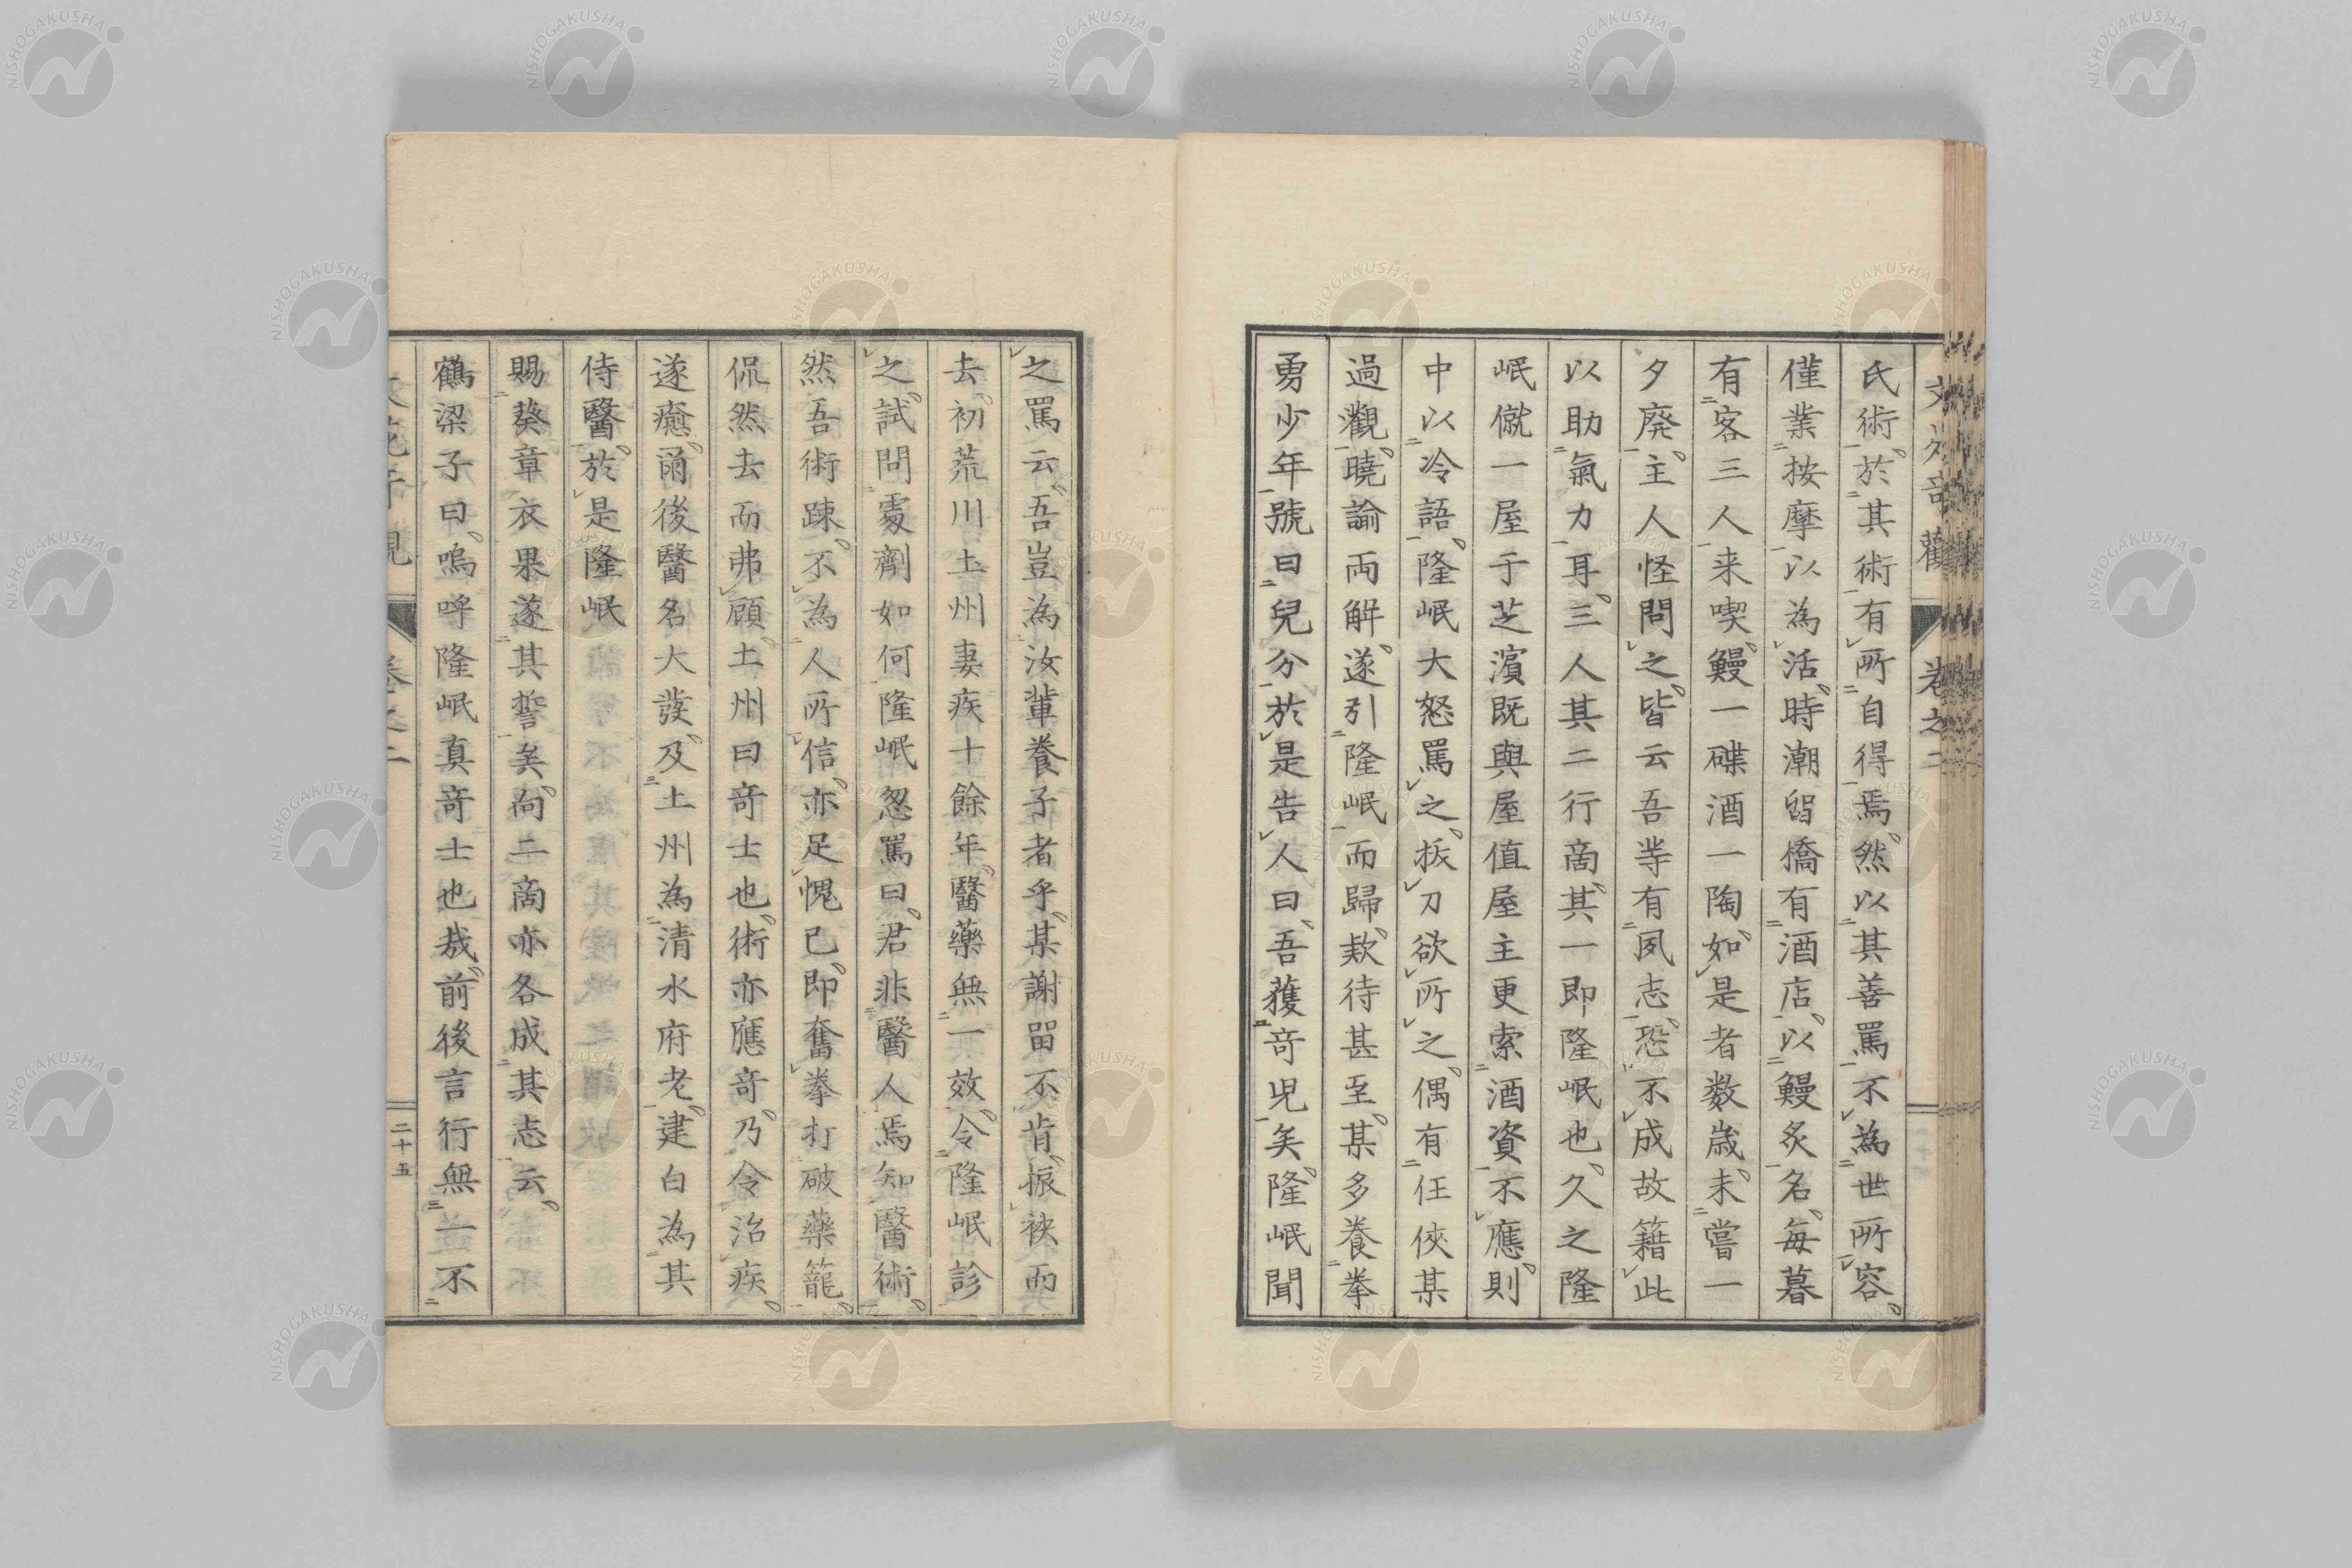 氏術於其術有所自得焉然以其善罵不為世所容
僅業按摩以為活時潮留橋有酒店以鰻炙名每暮
有客三人来喫鰻一碟酒一陶如是者数歳未嘗一
夕廃主人怪問之皆云吾等有夙志恐不成故籍此
以助氣力耳三人其二行啇其一即隆岷也久之隆
岷僦一屋于芝濱既與屋値屋主更索酒資不應則
中以冷語隆岷大怒罵之拔刀欲所之偶有任俠某
過觀曉諭両解遂引隆岷而歸欵待甚至某多養拳
勇少年號曰兒分於是告人曰吾獲竒児矣隆岷聞
之罵云吾豈為汝輩養子者乎某謝留不肯振袂而
去初荒川土州妻疾十餘年醫藥無一效令隆岷診
之試問處劑如何隆岷忽罵曰君非醫人焉知醫術
然吾術踈不為人所信亦足愧已即奮拳打破藥籠
侃然去而弗顧土州曰竒士也術亦應竒乃令治疾
遂癒爾後醫名大發及土州為清水府老建白為其
侍醫於是隆岷
賜葵章衣果遂其誓矣向二啇亦各成其志云
鶴梁子曰嗚呼隆岷真竒士也哉前後言行無一不
卷之二
二十五